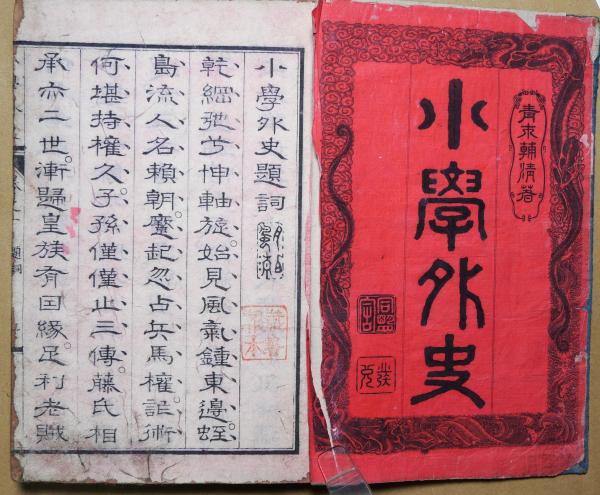 青木輔清著
小學外史
同盟舍
發兌
小學外史題詞
乾綱弛兮坤軸旋。始見風氣鍾東邊。蛭
島流人名賴朝。蹷起忽占兵馬權。詐術
何堪持權久。子孫僅僅止三傳。藤氏相
承亦二世。漸歸皇族有因緣。足利老賊
題詞